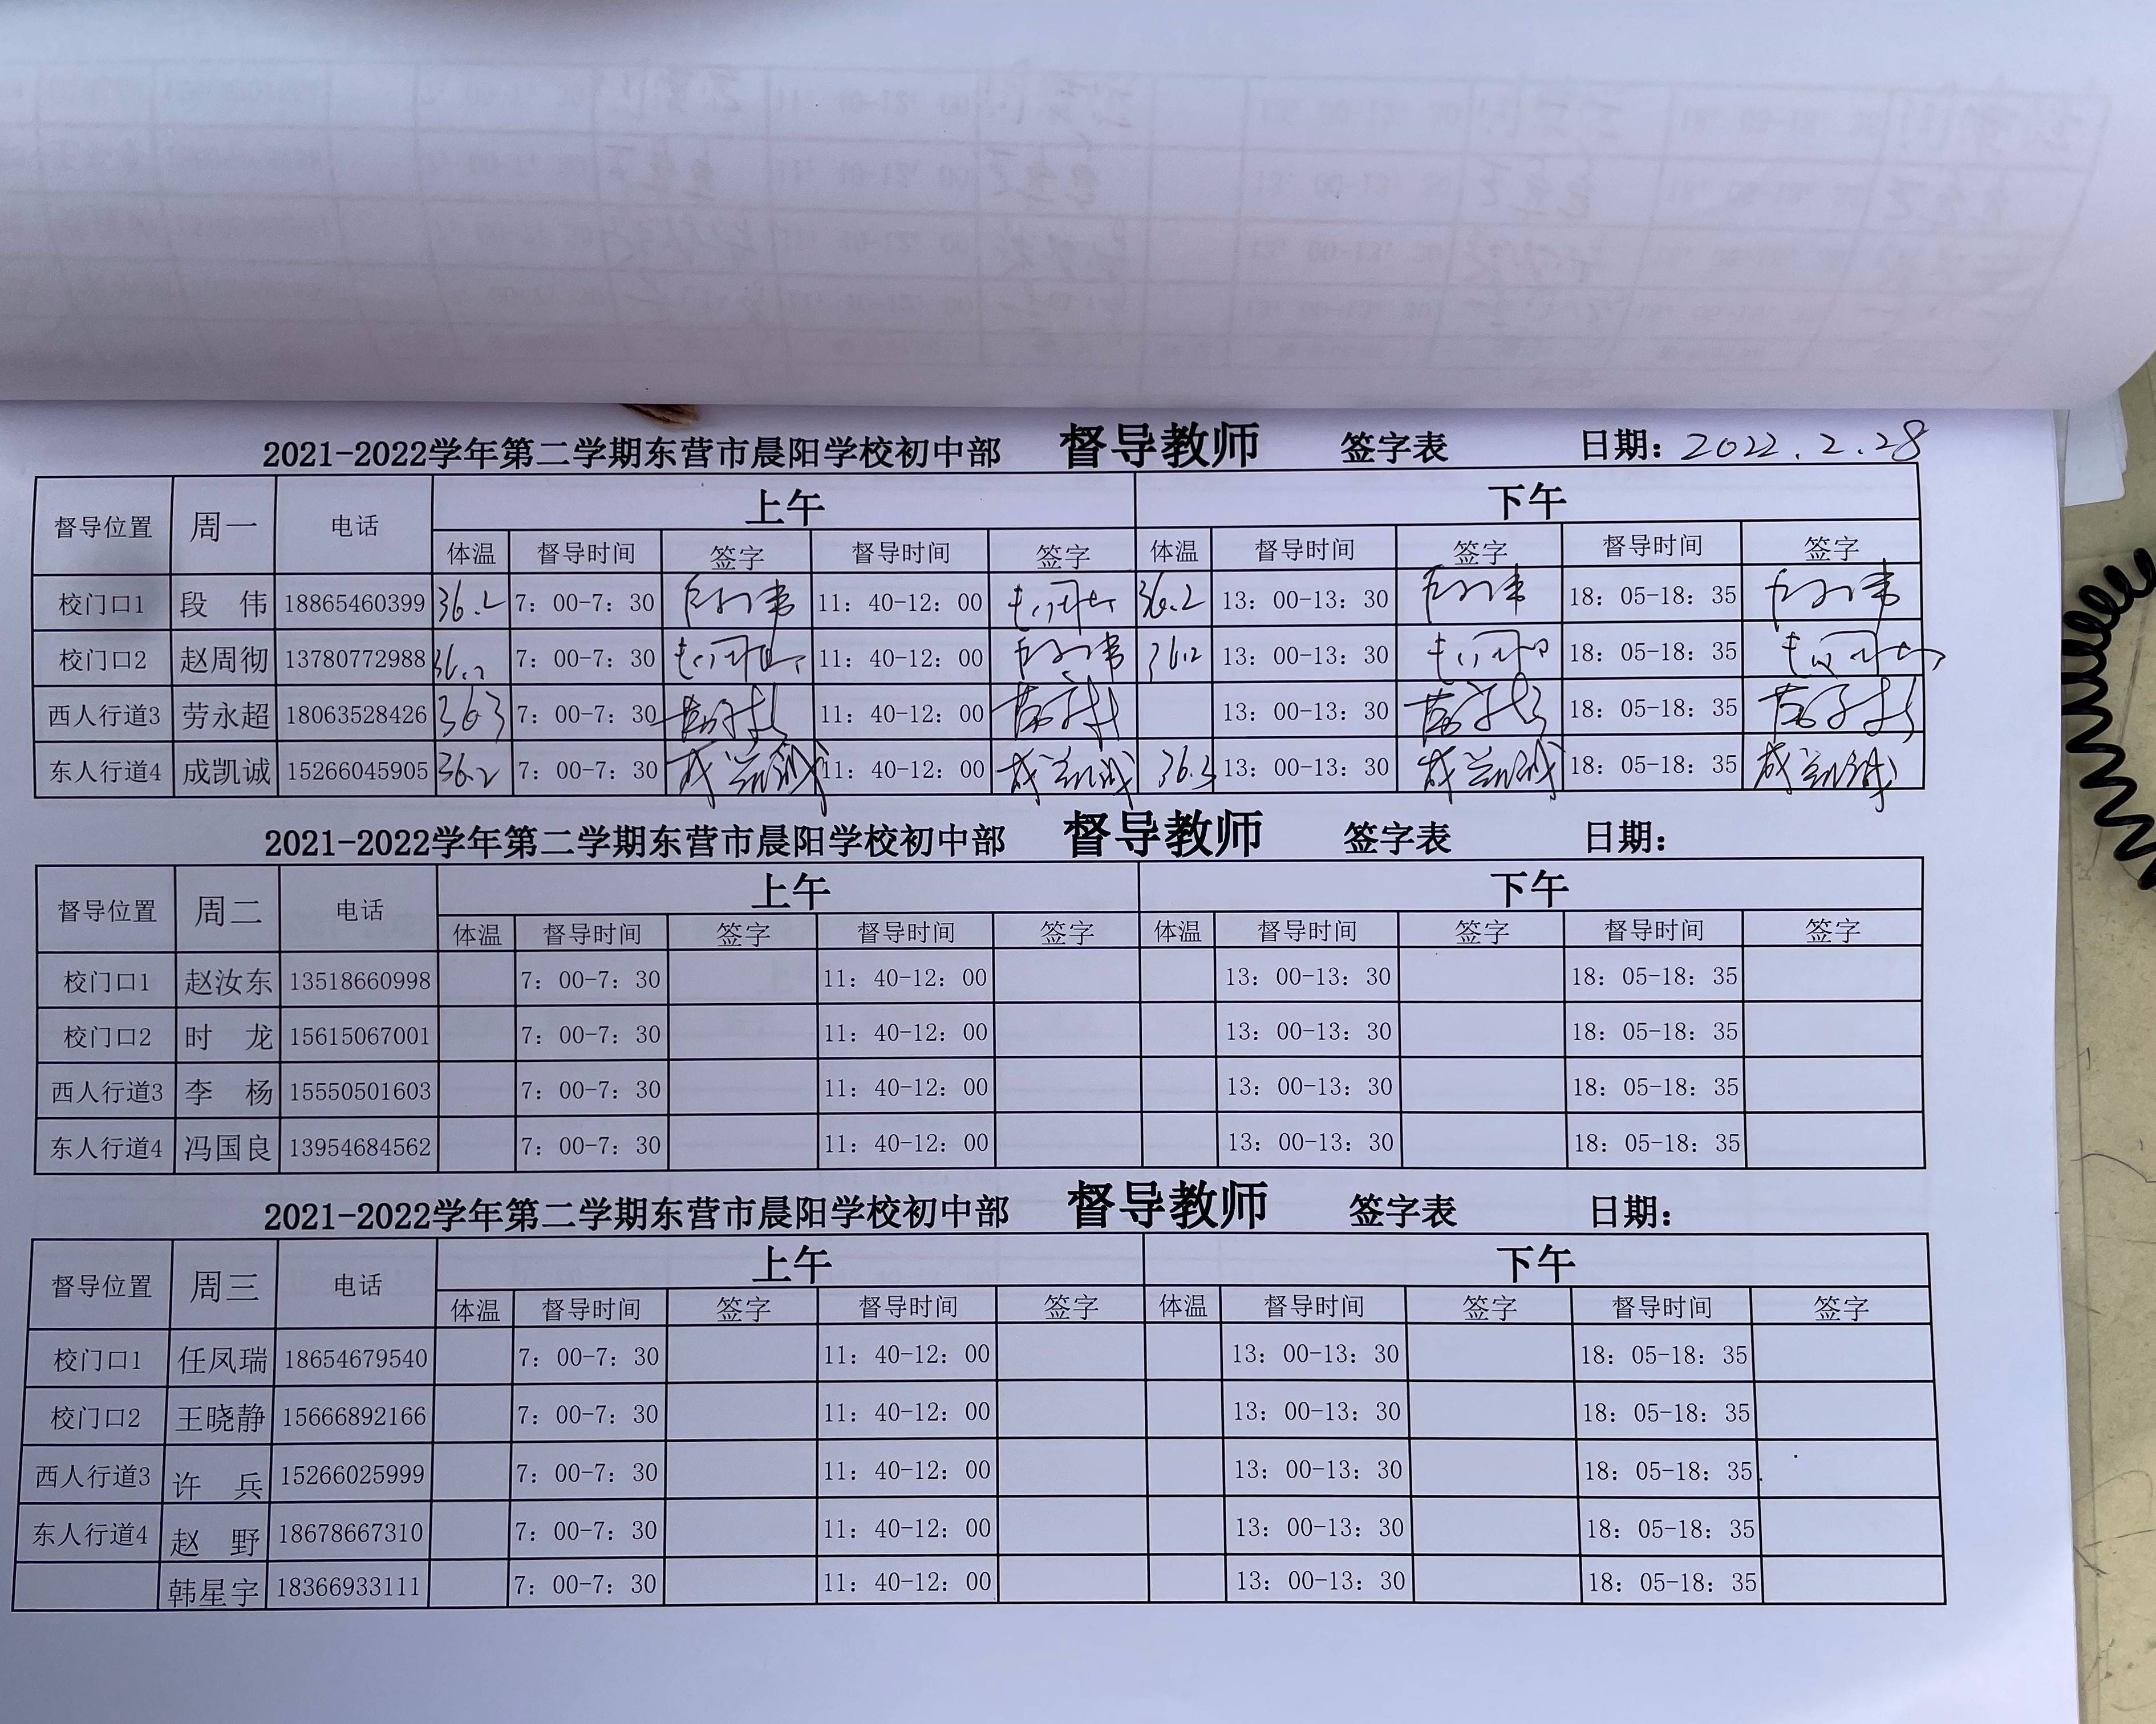 2021-2022学年第二学期东营市晨阳学校初中部 督导教师 签字表 日期: 2022.2.28
督导位置 周一 电话 上午 下午
体温 督导时间 签字 督导时间 签字 体温 督导时间 签字 督导时间 签字
校门口1 段 伟 18865460399 36.2 7: 00-7: 30 11: 40-12: 00 36.2 13: 00-13: 30 18: 05-18: 35
校门口2 赵周彻 13780772988 36.2 7: 00-7: 30 11: 40-12: 00 36.2 13: 00-13: 30 18: 05-18: 35
西人行道3 劳永超 18063528426 363 7: 00-7: 30 11: 40-12: 00 13: 00-13: 30 18: 05-18: 35
东人行道4 成凯诚 15266045905 36.2 7: 00-7: 30 成凯诚 11: 40-12: 00 成凯诚 36.3 13: 00-13: 30 成凯诚 18: 05-18: 35 成凯诚
2021-2022学年第二学期东营市晨阳学校初中部 督导教师 签字表 日期:
督导位置 周二 电话 上午 下午
体温 督导时间 签字 督导时间 签字 体温 督导时间 签字 督导时间 签字
校门口1 赵汝东 13518660998 7: 00-7: 30 11: 40-12: 00 13: 00-13: 30 18: 05-18: 35
校门口2 时 龙 15615067001 7: 00-7: 30 11: 40-12: 00 13: 00-13: 30 18: 05-18: 35
西人行道3 李 杨 15550501603 7: 00-7: 30 11: 40-12: 00 13: 00-13: 30 18: 05-18: 35
东人行道4 冯国良 13954684562 7: 00-7: 30 11: 40-12: 00 13: 00-13: 30 18: 05-18: 35
2021-2022学年第二学期东营市晨阳学校初中部 督导教师 签字表 日期:
督导位置 周三 电话 上午 下午
体温 督导时间 签字 督导时间 签字 体温 督导时间 签字 督导时间 签字
校门口1 任凤瑞 18654679540 7: 00-7: 30 11: 40-12: 00 13: 00-13: 30 18: 05-18: 35
校门口2 王晓静 15666892166 7: 00-7: 30 11: 40-12: 00 13: 00-13: 30 18: 05-18: 35
西人行道3 许 兵 15266025999 7: 00-7: 30 11: 40-12: 00 13: 00-13: 30 18: 05-18: 35
东人行道4 赵 野 18678667310 7: 00-7: 30 11: 40-12: 00 13: 00-13: 30 18: 05-18: 35
韩星宇 18366933111 7: 00-7: 30 11: 40-12: 00 13: 00-13: 30 18: 05-18: 35